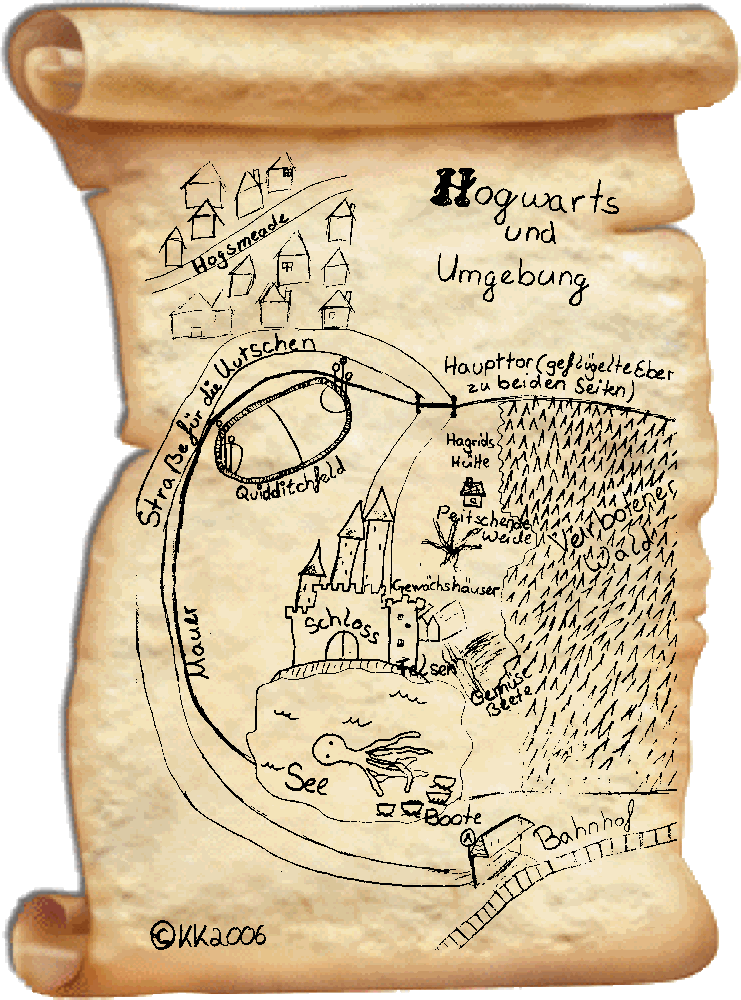 Hogwarts
und
Umgebung
Hogsmeade
Straße für die Kutschen
Haupttor (geflügelte Eber
zu beiden Seiten)
Hagrids
Hütte
Quidditchfeld
Peitschende
Weide
Verbotener
Wald
Gewächshäuser
Schloss
Mauer
Felsen
Gemüse
Beete
See
Boote
Bahnhof
©KK2006